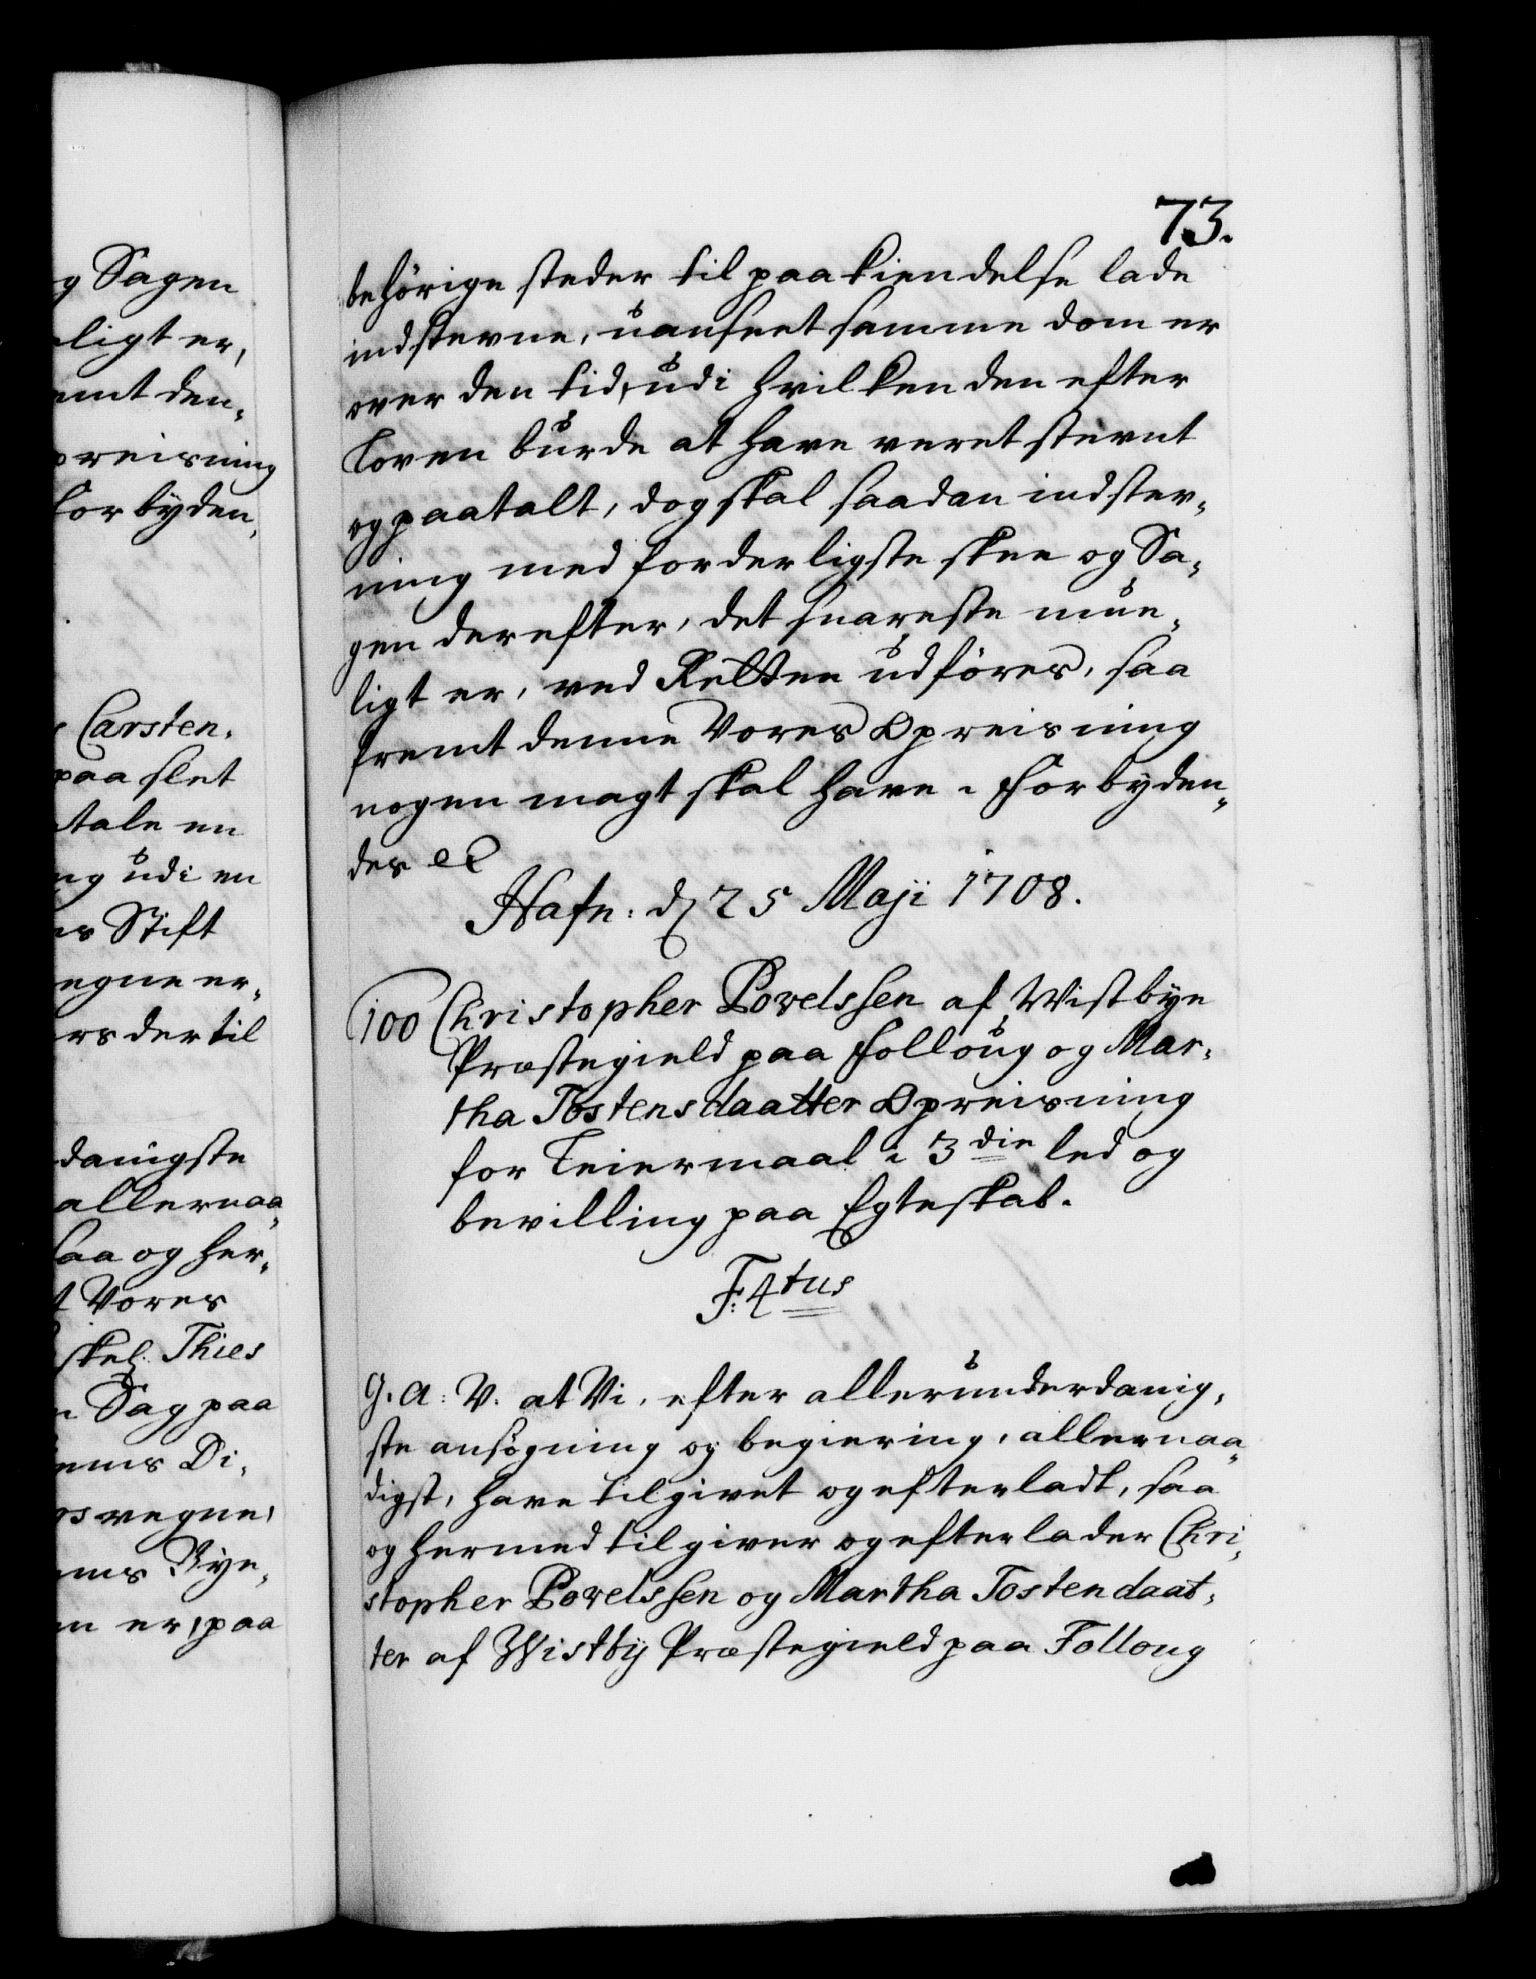 g Sagen
ligt er,
emt den-
preisning
forbyden,
Carsten-
paa slet
tale en
ng udi en
es Stift
egne er-
rs dertil
danigste
allernaa-
saa og her-
t Vores
skel: Thies
n Sag paa
ems Di-
os vegne,
ems Bye-
en er, paa
73.
behörige steder til paakiendelse lade
indstevne, uanseet samme dom er
over den tid, udi hvilken den efter
Loven burde at have veret stevnt
og paatalt, dog skal saadan indstev-
ning med forderligste skee og Sa-
gen derefter, det snareste mue-
ligt er, ved Retten udföres, saa
fremt denne Vores Opreisning
nogen magt skal have. Forbyden-
des etc
Hafn: d 25 Maji 1708.
100 Christopher Povelssen af Wistbye
Præstegield paa Folloug og Mar-
tha Tostensdaatter Opreisning
for Leiermaal i 3die led og
bevilling paa Egteskab.
F: 4tus
G. A: V. at Vi, efter allerunderdanig-
ste ansögning og begiering, allernaa-
digst, have tilgivet og efterladt, saa
og hermed tilgiver og efterlader Chri-
stopher Povelssen og Martha Tostendaat-
ter af Wistby Præstegield paa Folloug